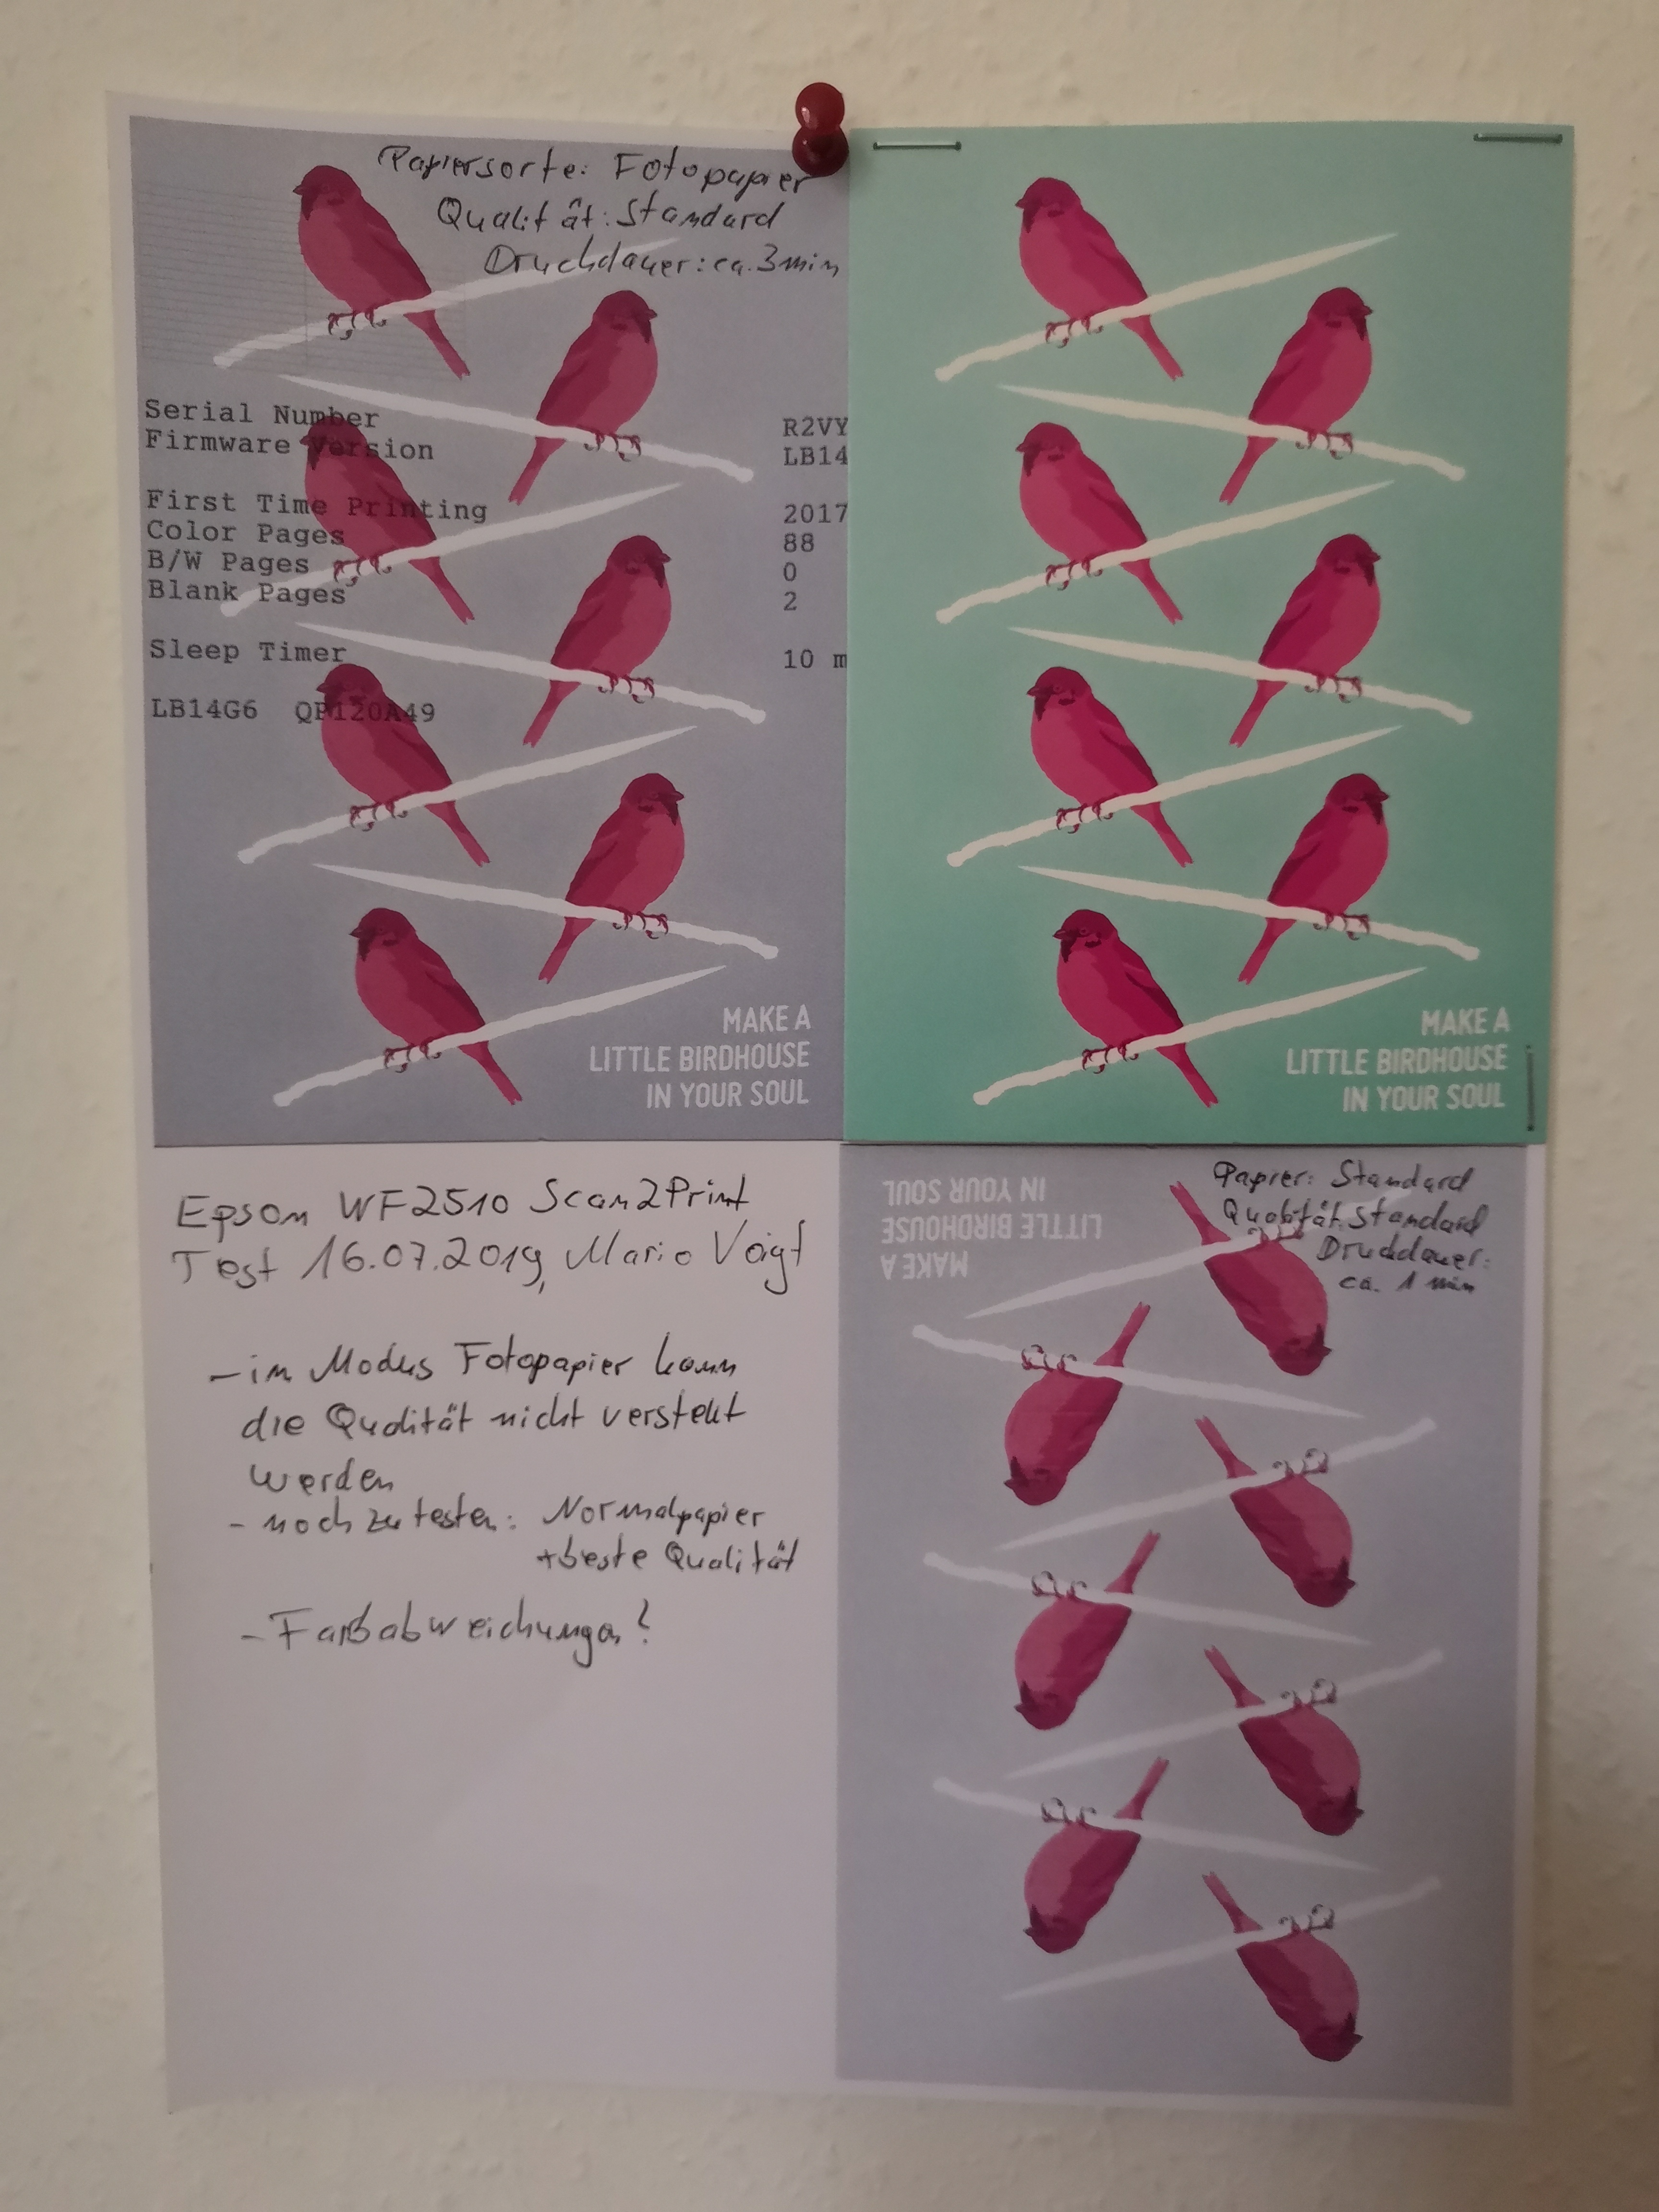 Papiersorte: Fotopapier
Qualität: Standard
Druckdauer: ca. 3 min
Serial Number R2VY
Firmware Version LB14
First Time Printing 2017
Color Pages 88
B/W Pages 0
Blank Pages 2
Sleep Timer 10 m
LB14G6 QP120A49
MAKE A
LITTLE BIRDHOUSE
IN YOUR SOUL
MAKE A
LITTLE BIRDHOUSE
IN YOUR SOUL
Epson WF2510 Scan2Print
Test 16.07.2019, Mario Voigt
- im Modus Fotopapier kann
die Qualität nicht verstellt
werden
- noch zu testen: Normalpapier
+beste Qualität
- Farbabweichungen?
Papier: Standard
Qualität: Standard
Druckdauer:
ca. 1 min
MAKE A
LITTLE BIRDHOUSE
IN YOUR SOUL